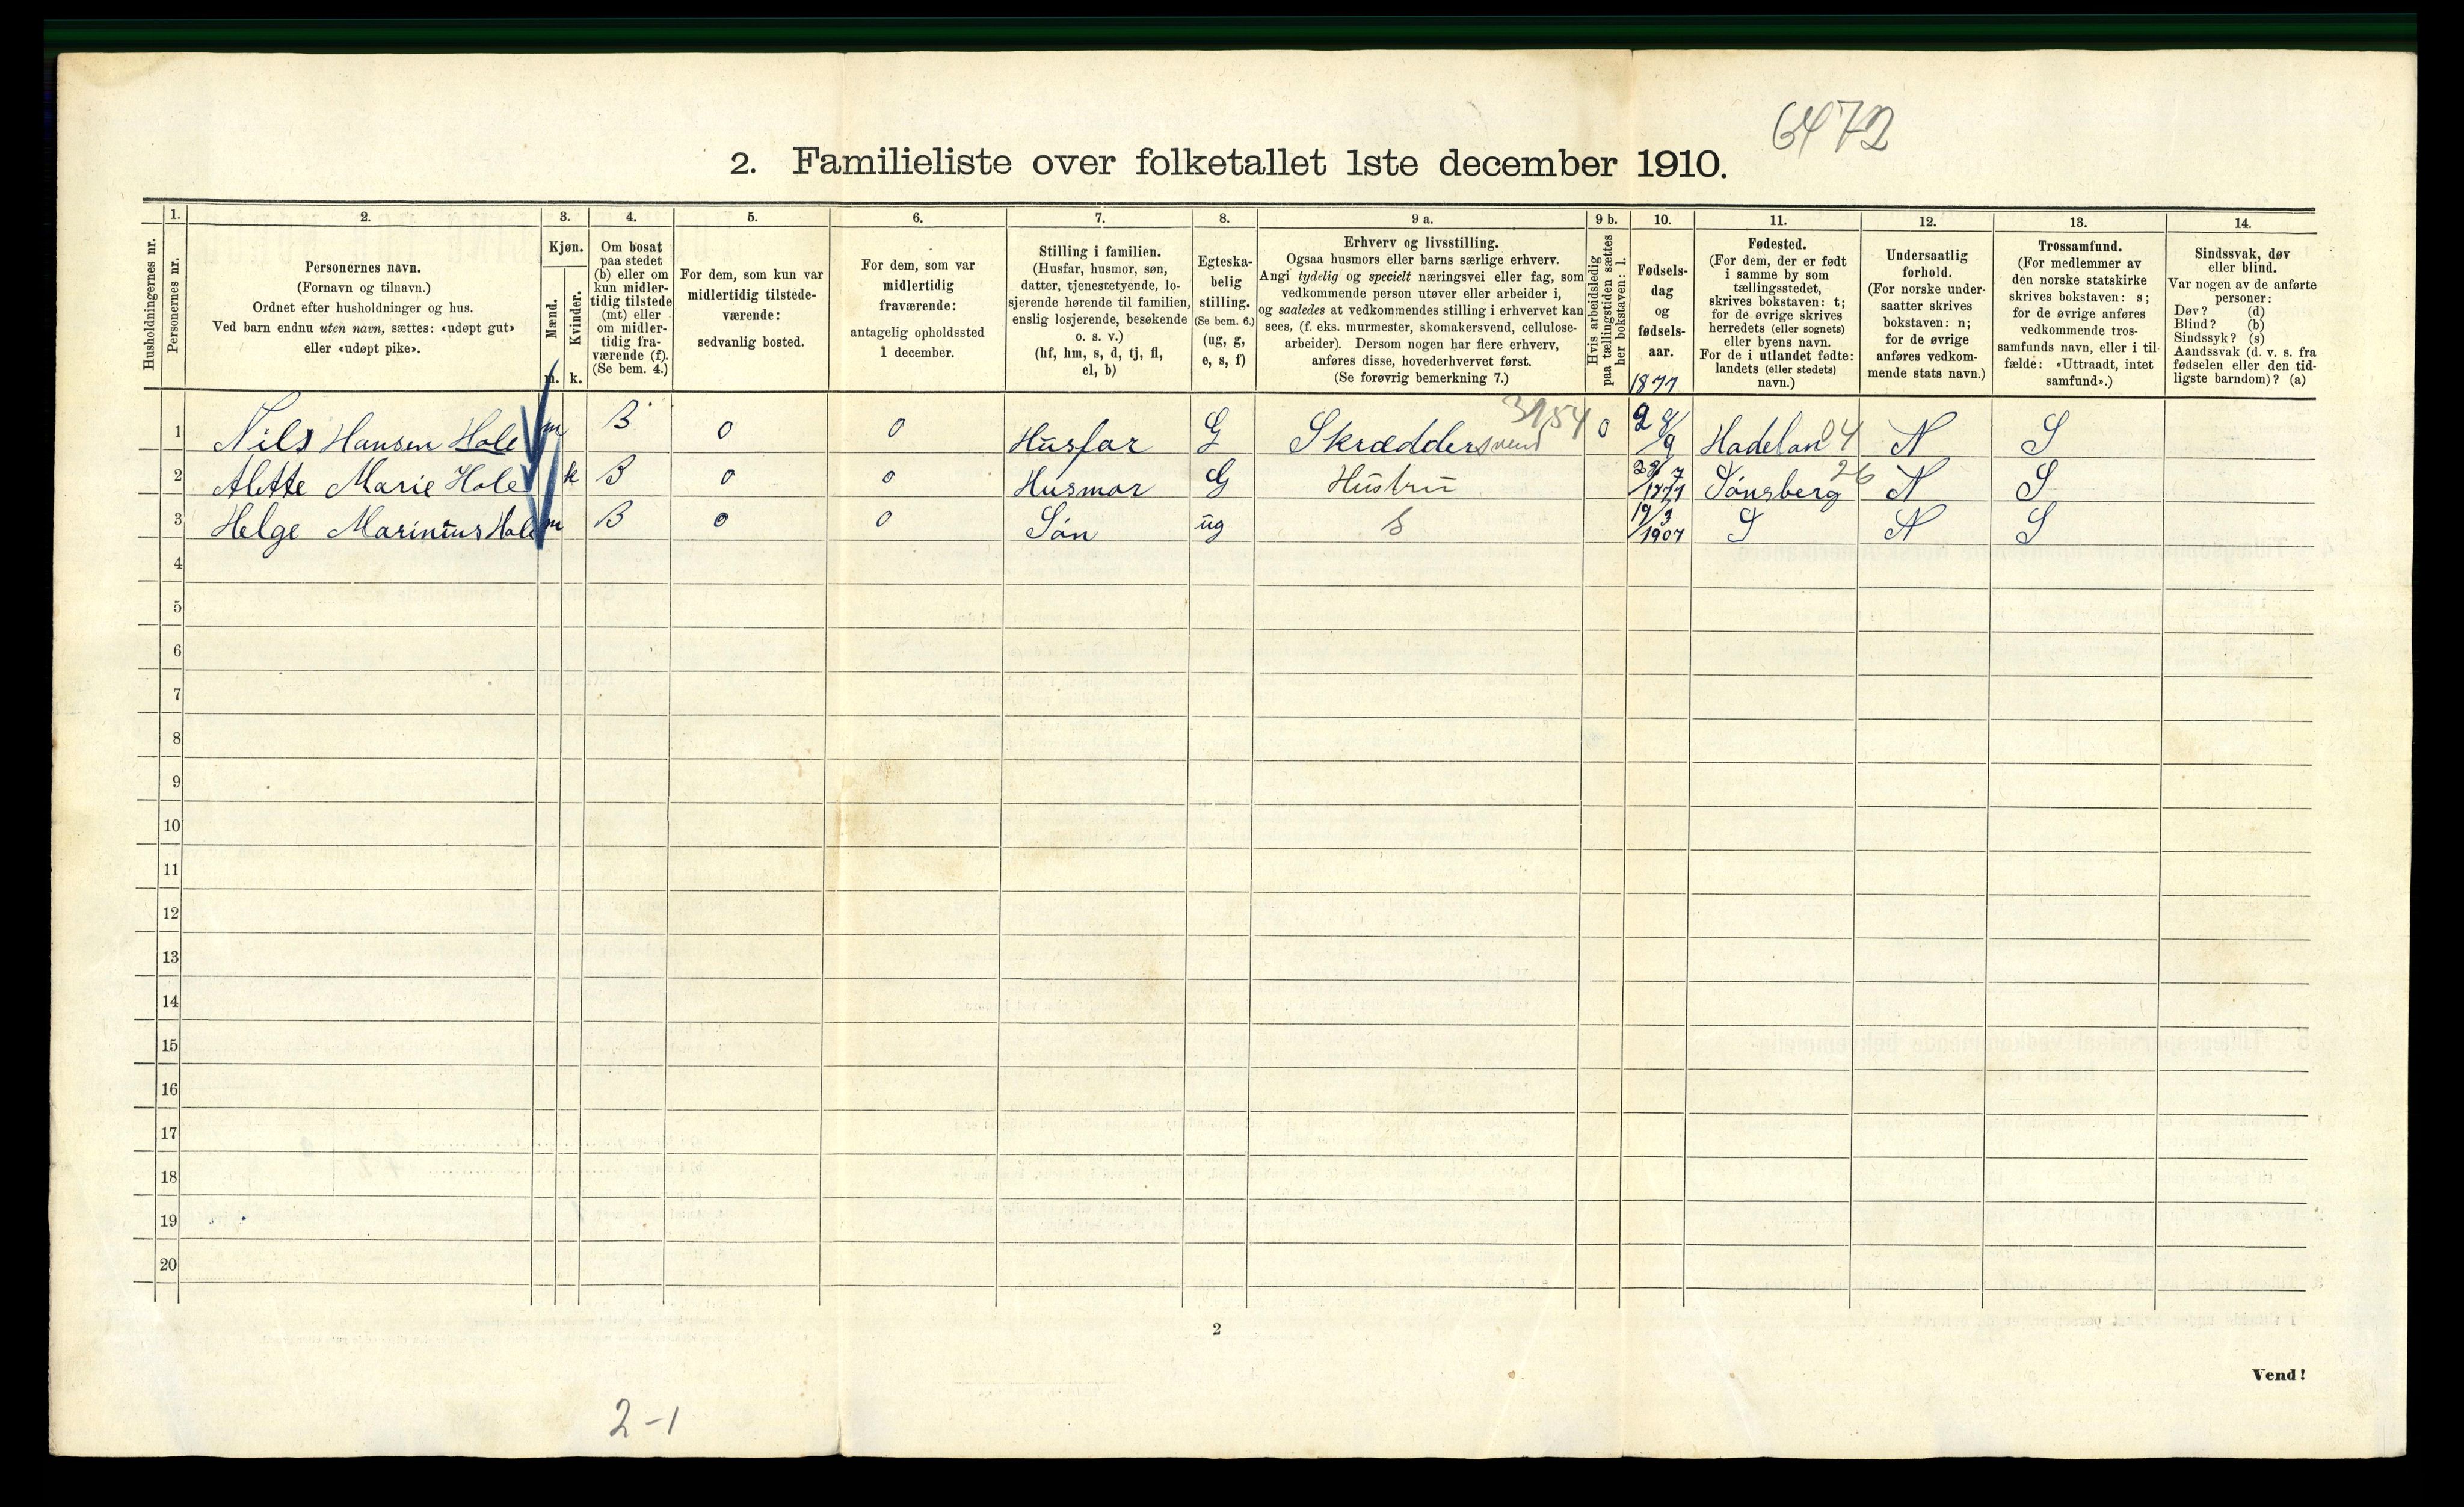 6472
2. Familieliste over folketallet 1ste december 1910.
Husholdningernes nr.
1.
Personernes nr.
2.
Personernes navn.
(Fornavn og tilnavn.)
Ordnet efter husholdninger og hus.
Ved barn endnu uten navn, sættes: «udøpt gut»
eller «udøpt pike».
3.
Kjøn.
Mænd.
Kvinder.
m. k.
4.
Om bosat
paa stedet
(b) eller om
kun midler-
tidig tilstede
(mt) eller
om midler-
tidig fra-
værende (f).
(Se bem. 4.)
5.
For dem, som kun var
midlertidig tilstede-
værende:
sedvanlig bosted.
6.
For dem, som var
midlertidig
fraværende:
antagelig opholdssted
1 december.
7.
Stilling i familien.
(Husfar, husmor, søn,
datter, tjenestetyende, lo-
sjerende hørende til familien,
enslig losjerende, besøkende
o. s. v.)
(hf, hm, s, d, tj, fl,
el, b)
8.
Egteska-
belig
stilling.
(Se bem. 6.)
(ug, g,
e, s, f)
9 a.
Erhverv og livsstilling.
Ogsaa husmors eller barns særlige erhverv.
Angi tydelig og specielt næringsvei eller fag, som
vedkommende person utøver eller arbeider i,
og saaledes at vedkommendes stilling i erhvervet kan
sees, (f. eks. murmester, skomakersvend, cellulose-
arbeider). Dersom nogen har flere erhverv,
anføres disse, hovederhvervet først.
(Se forøvrig bemerkning 7.)
9 b.
Hvis arbeidsledig
paa tællingstiden sættes
her bokstaven: l.
10.
Fødsels-
dag
og
fødsels-
aar.
11.
Fødested.
(For dem, der er født
i samme by som
tællingsstedet,
skrives bokstaven: t;
for de øvrige skrives
herredets (eller sognets)
eller byens navn.
For de i utlandet fødte:
landets (eller stedets)
navn.)
12.
Undersaatlig
forhold.
(For norske under-
saatter skrives
bokstaven: n;
for de øvrige
anføres vedkom-
mende stats navn.)
13.
Trossamfund.
(For medlemmer av
den norske statskirke
skrives bokstaven: s;
for de øvrige anføres
vedkommende tros-
samfunds navn, eller i til-
fælde: «Uttraadt, intet
samfund».)
14.
Sindssvak, døv
eller blind.
Var nogen av de anførte
personer:
Døv? (d)
Blind? (b)
Sindssyk? (s)
Aandssvak (d. v. s. fra
fødselen eller den tid-
ligste barndom)? (a)
1 Nils Hansen Hole m B 0 0 Husfar G Skræddersvend 3154 0 28/9 1877 Hadeland 04 N S
2 Alette Marie Hole k B 0 0 Husmor G Hustru 28/7 1877 Tönsberg 26 N S
3 Helge Marinius Hole m B 0 0 Sön ug S 19/3 1907 T N S
4
5
6
7
8
9
10
11
12
13
14
15
16
17
18
19
20
2
Vend!
2-1